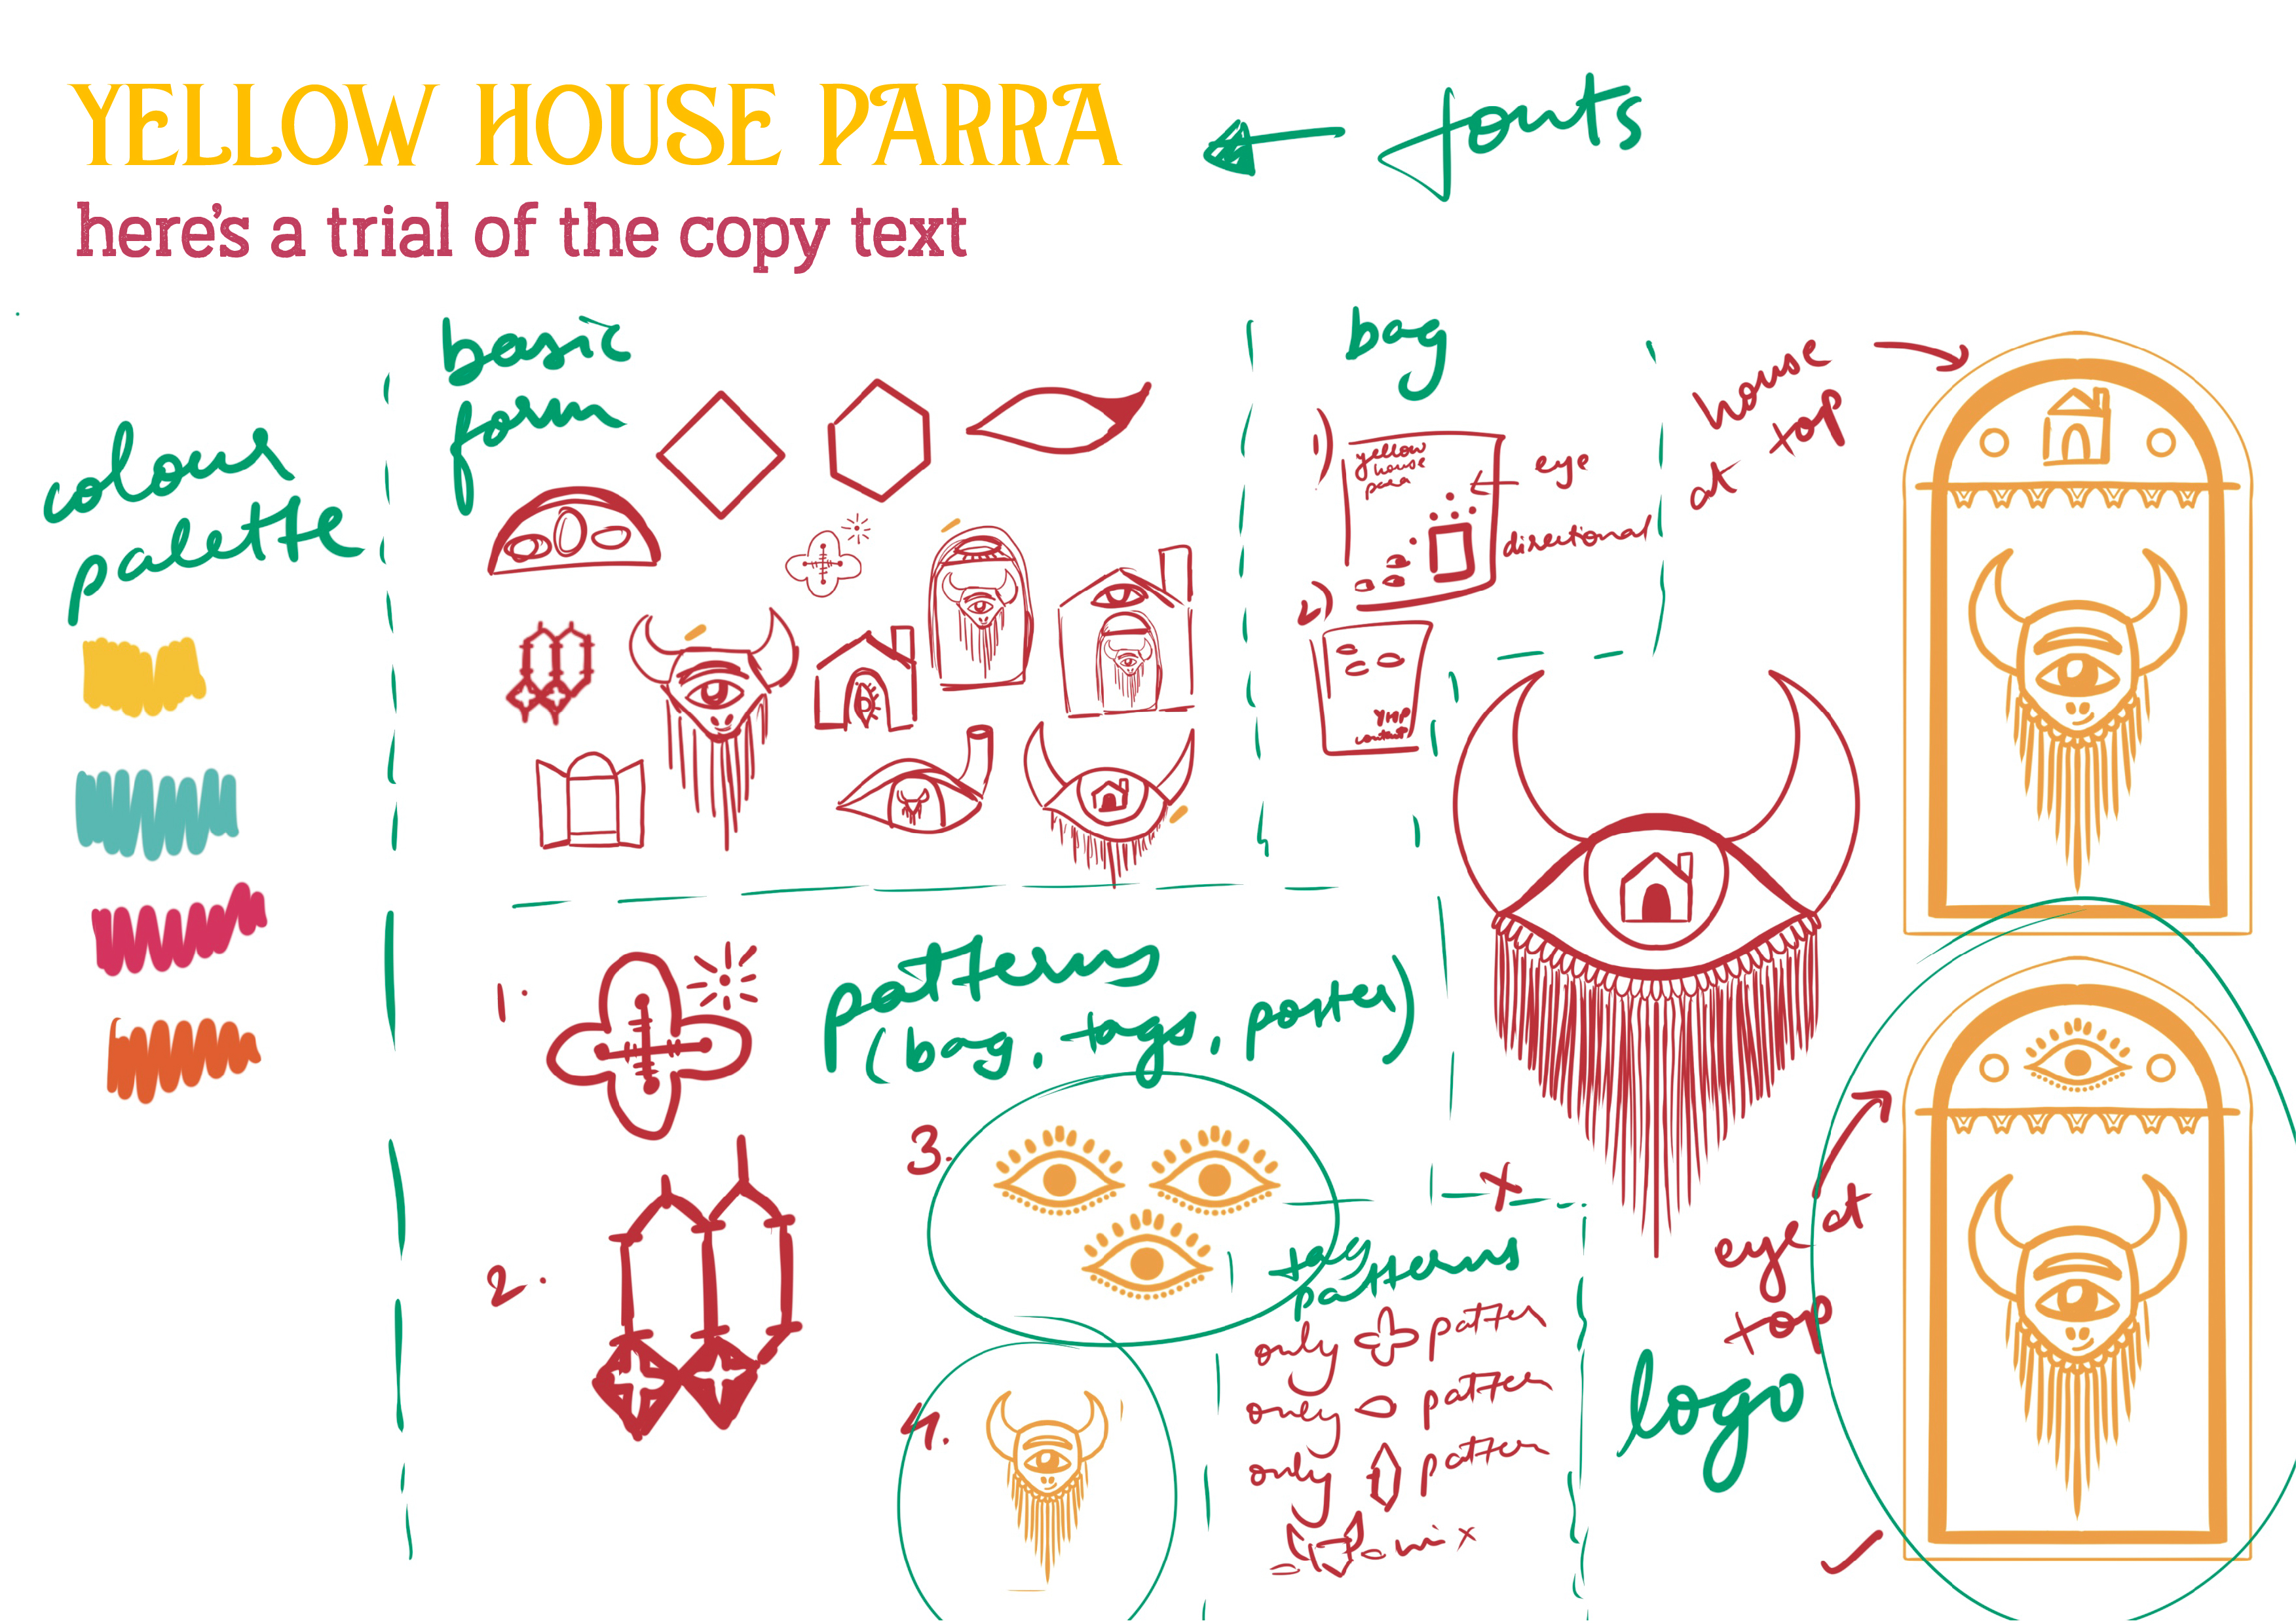 YELLOW HOUSE PARRA
here's a trial of the copy text
← fonts
colour
palette
basic
form
bag
1)
yellow
house
para
eye
directional
2)
YHP
contact
house
at top
1.
patterns
(bag, tags, poster)
2.
3.
4.
x
tag
patterns
only patter
only patter
only patter
mix
eye at
top
logo